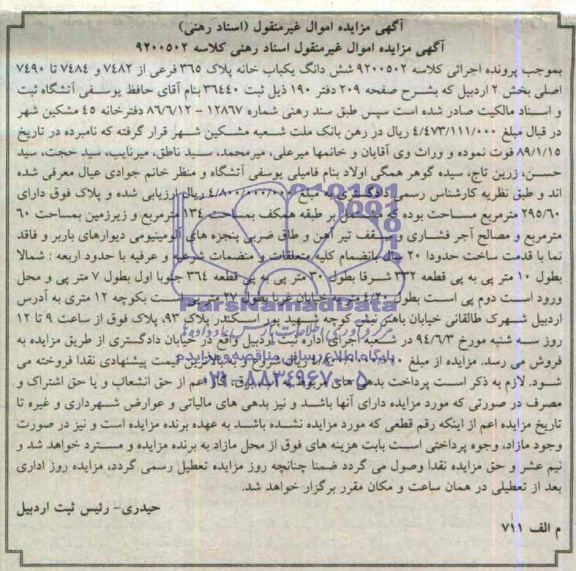 آگهی مزایده اموال غیرمنقول (اسناد رهنی)
آگهی مزایده اموال غیرمنقول اسناد رهنی کلاسه ۹۲۰۰۵۰۲
بموجب پرونده اجرائی کلاسه ۹۲۰۰۵۰۲ شش دانگ یکباب خانه پلاک ۳۶۵ فرعی از ۷۴۸۲ و ۷۴۸۴ تا ۷۴۹۰
اصلی بخش ۲ اردبیل که بشرح صفحه ۲۰۹ دفتر ۱۹۰ ذیل ثبت ۳۶۴۴۰ بنام آقای حافظ یوسفی آتشگاه ثبت
و اسناد مالکیت صادر شده است سپس طبق سند رهنی شماره ۱۲۸۶۷ - ۸۶/۶/۱۲ دفترخانه ۴۵ مشکین شهر
در قبال مبلغ ۴/۴۷۳/۱۱۱/۰۰۰ ریال در رهن بانک ملت شعبه مشکین شهر قرار گرفته که نامبرده در تاریخ
۸۹/۱/۱۵ فوت نموده و وراث وی آقایان و خانمها میرعلی، میرمحمد، سید ناطق، میرنایب، سید حجت، سید
حسن، زرین تاج، سیده گوهر همگی اولاد بنام فامیلی یوسفی آتشگاه و منظر خانم جوادی عیال معرفی شده
اند و طبق نظریه کارشناس رسمی دادگستری به مبلغ ۴/۸۰۰/۰۰۰/۰۰۰ ریال ارزیابی شده و پلاک فوق دارای
۲۹۵/۶۰ مترمربع مساحت بوده که مشتمل بر طبقه همکف بمساحت ۱۳۴ مترمربع و زیرزمین بمساحت ۶۰
مترمربع و مصالح آجر فشاری و سقف تیر آهن و طاق ضربی پنجره های آلومینیومی دیوارهای باربر و فاقد
نما با قدمت ساخت حدودا ۲۰ سال بانضمام کلیه متعلقات و منضمات شرعیه و عرفیه با حدود اربعه : شمالا
بطول ۱۰ متر پی به پی قطعه ۳۳۲ شرقا بطول ۳۰ متر پی به پی قطعه ۳۶۴ جنوبا اول بطول ۷ متر پی و محل
ورود است دوم پی است بطول ۴/۲۰ متر به خیابان غربا بطول ۲۷ متر پی است بکوچه ۱۲ متری به آدرس
اردبیل شهرک طالقانی خیابان باهنر نبش کوچه شهید پور اسکندر پلاک ۹۳، پلاک فوق از ساعت ۹ تا ۱۲
روز سه شنبه مورخ ۹۴/۶/۳ در شعبه اجرای اداره ثبت اردبیل واقع در خیابان دادگستری از طریق مزایده به
فروش می رسد. مزایده از مبلغ ۴/۸۰۰/۰۰۰/۰۰۰ ریال شروع و به بالاترین قیمت پیشنهادی نقدا فروخته می
شود. لازم به ذکر است پرداخت بدهی های مربوط به آب، برق، گاز اعم از حق انشعاب و یا حق اشتراک و
مصرف در صورتی که مورد مزایده دارای آنها باشد و نیز بدهی های مالیاتی و عوارض شهرداری و غیره تا
تاریخ مزایده اعم از اینکه رقم قطعی که مورد مزایده نشده باشد به عهده برنده مزایده است و نیز در صورت
وجود مازاد، وجوه پرداختی است بابت هزینه های فوق از محل مازاد به برنده مزایده و مسترد خواهد شد و
نیم عشر و حق مزایده نقدا وصول می گردد ضمنا چنانچه روز مزایده تعطیل رسمی گردد، مزایده روز اداری
بعد از تعطیلی در همان ساعت و مکان مقرر برگزار خواهد شد.
حیدری- رئیس ثبت اردبیل
م الف ۷۱۱
ParsNamadData
پایگاه اطلاع رسانی مناقصه و مزایده
۰۲۱-۸۸۳۴۹۶۷۰-۵